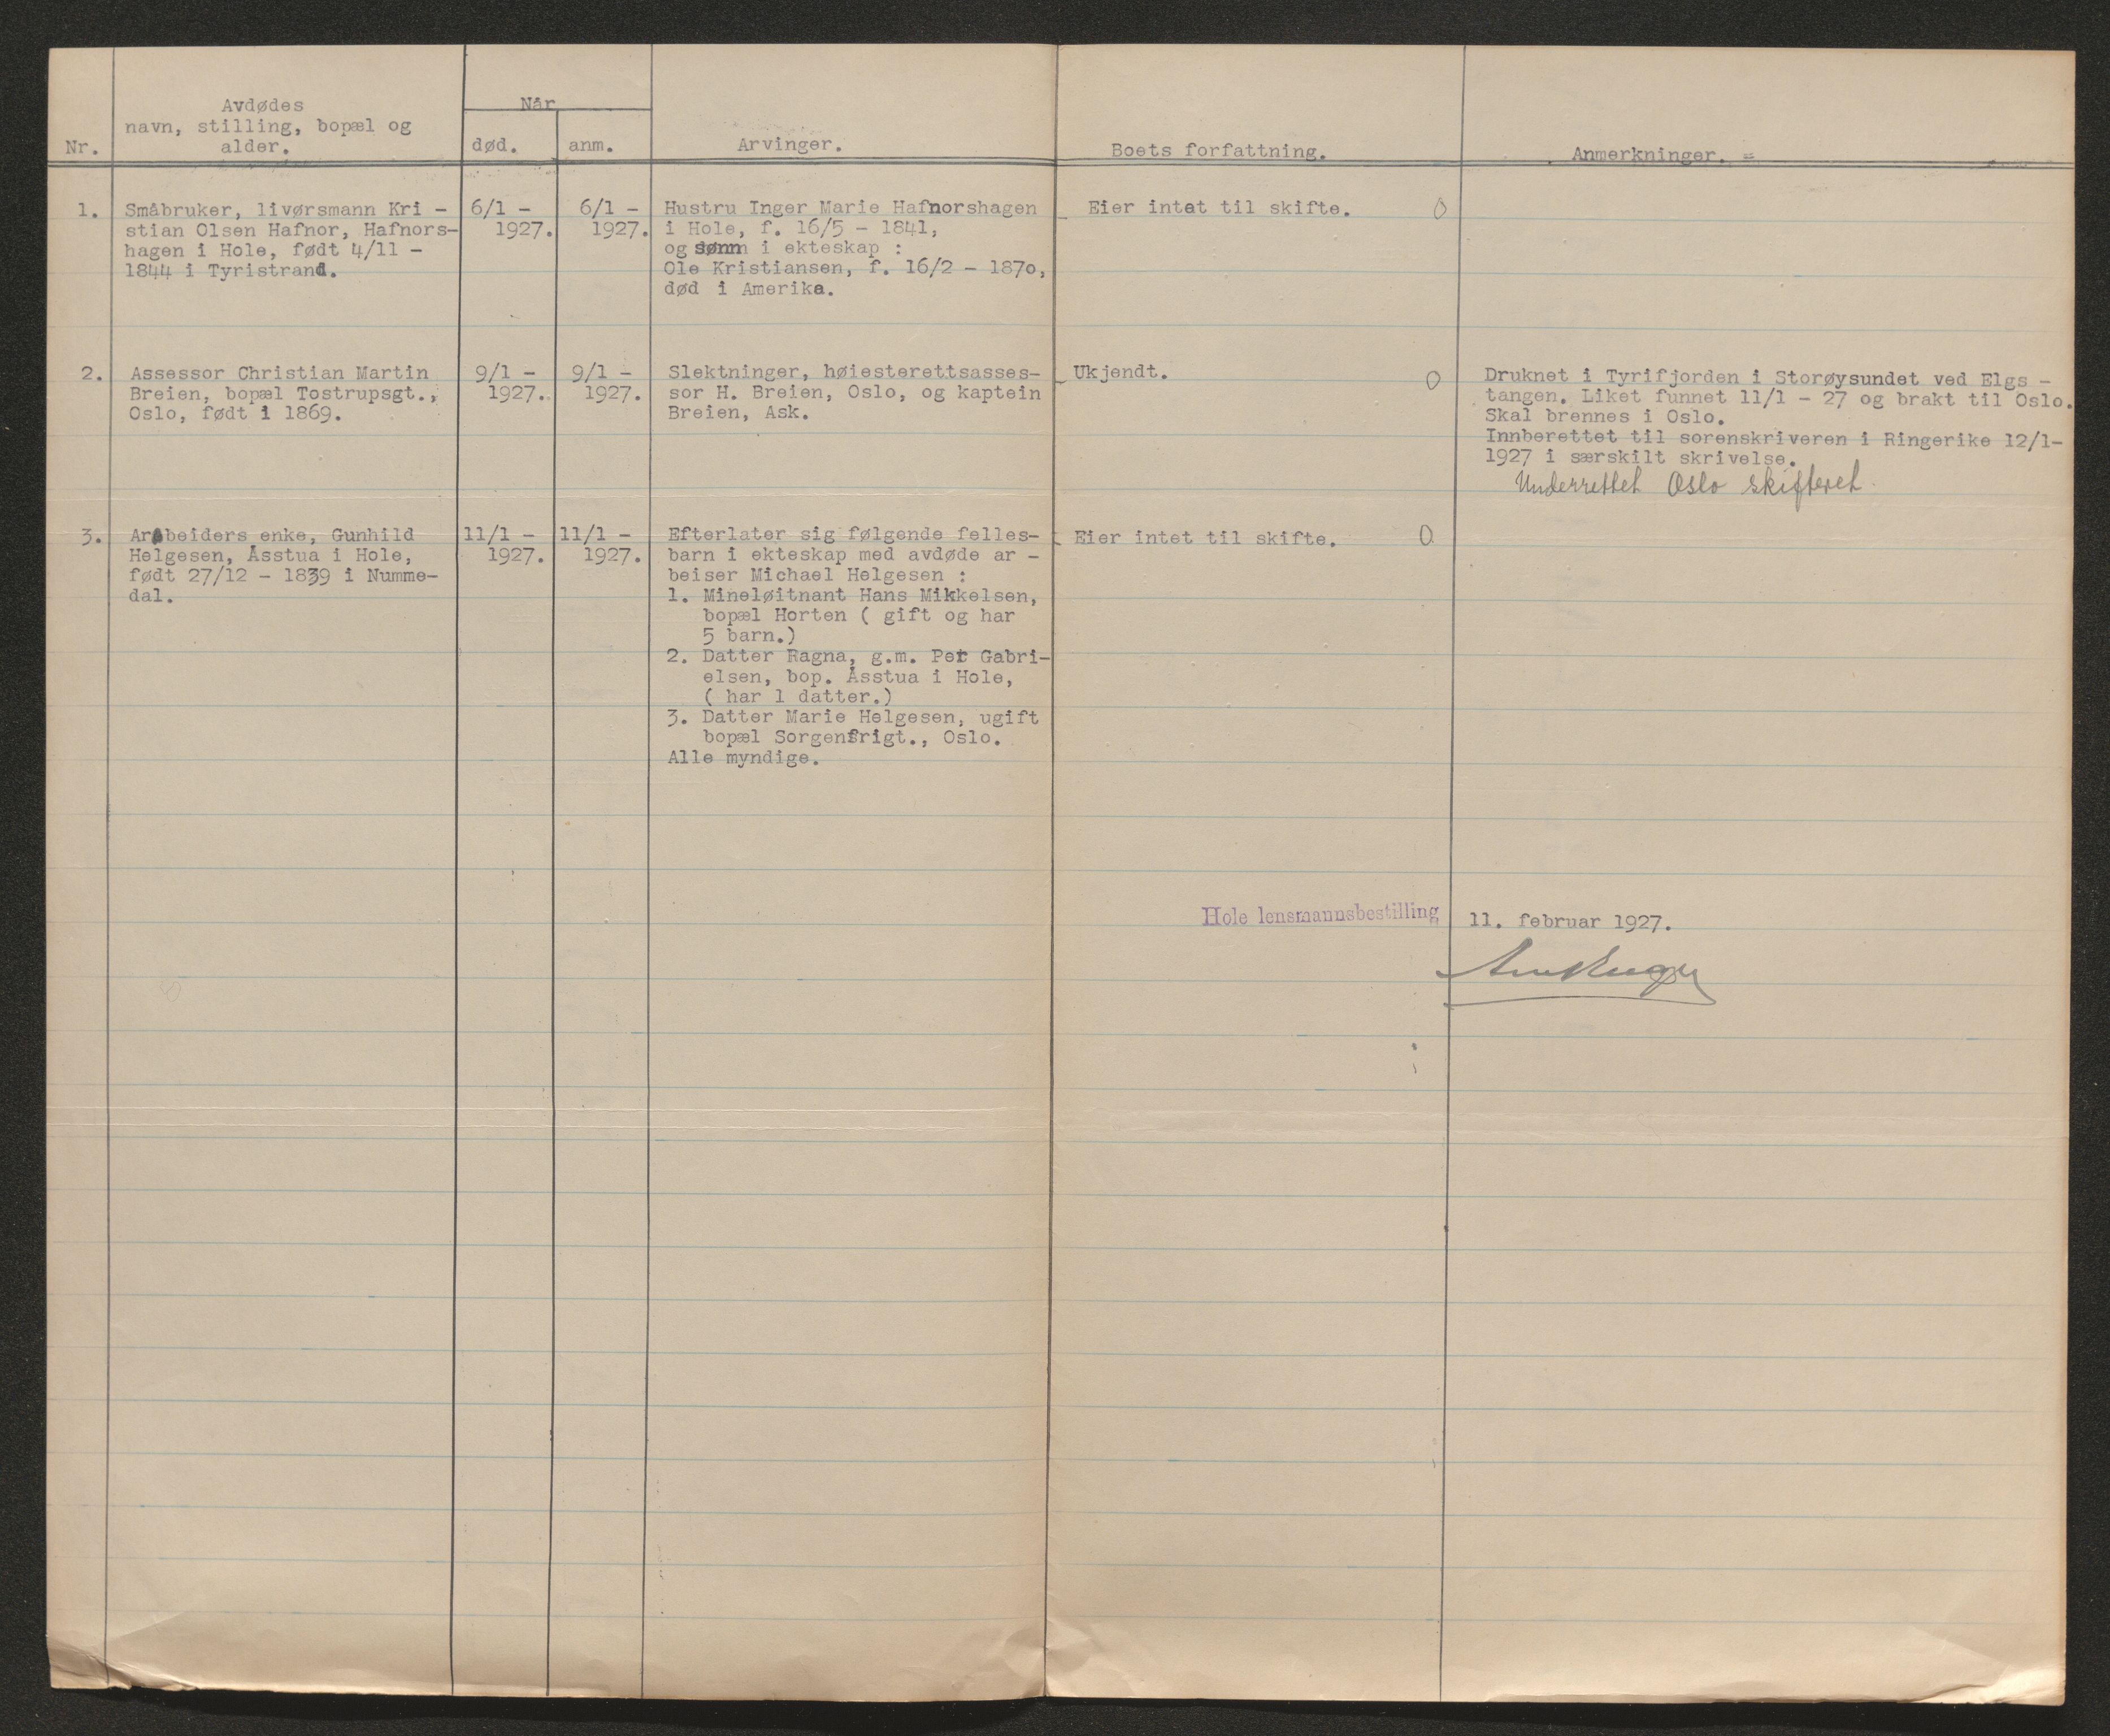 Nr.
Avdødes
navn, stilling, bopæl og
alder.
Når
død.
anm.
Arvinger.
Boets forfattning.
Anmerkninger. =
1.
Småbruker, livørsmann Kri -
stian Olsen Hafnor, Hafnors-
hagen i Hole, født 4/11 -
1844 i Tyristrand.
6/1 -
1927.
6/1 -
1927.
Hustru Inger Marie Hafnorshagen
i Hole, f. 16/5 - 1841,
og sønn i ekteskap :
Ole Kristiansen, f. 16/2 - 1870,
død i Amerika.
Eier intet til skifte.
0
2.
Assessor Christian Martin
Breien, bopæl Tostrupsgt.,
Oslo, født i 1869.
9/1 -
1927.
9/1 -
1927.
Slektninger, høiesterettsasses-
sor H. Breien, Oslo, og kaptein
Breien, Ask.
Ukjendt.
0
Druknet i Tyrifjorden i Storøysundet ved Elgs -
tangen. Liket funnet 11/1 - 27 og brakt til Oslo.
Skal brennes i Oslo.
Innberettet til sorenskriveren i Ringerike 12/1-
1927 i særskilt skrivelse.
Underrettet Oslo skifteret.
3.
Arbeiders enke, Gunhild
Helgesen, Åsstua i Hole,
født 27/12 - 1839 i Numme-
dal.
11/1 -
1927.
11/1 -
1927.
Efterlater sig følgende felles-
barn i ekteskap med avdøde ar -
beiser Michael Helgesen :
1. Mineløitnant Hans Mikkelsen,
bopæl Horten ( gift og har
5 barn.)
2. Datter Ragna, g.m. Per Gabri-
elsen, bop. Åsstua i Hole,
( har 1 datter.)
3. Datter Marie Helgesen, ugift
bopæl Sorgenfrigt., Oslo.
Alle myndige.
Eier intet til skifte.
0
Hole lensmannsbestilling
11. februar 1927.